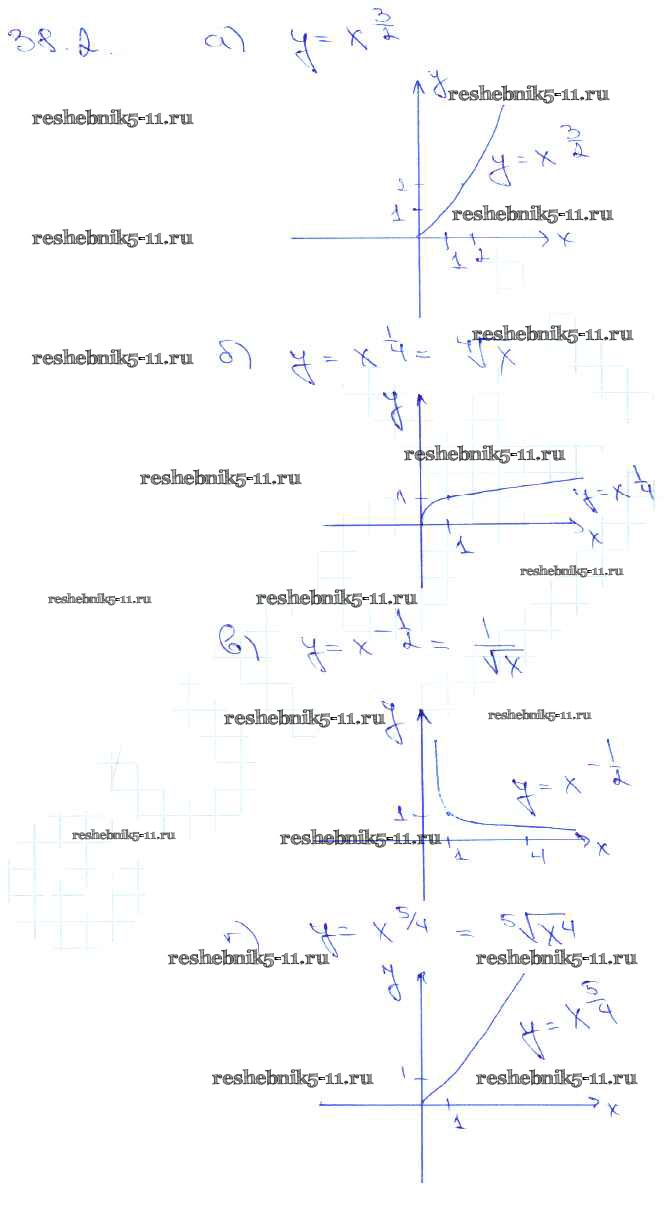 38.2. а) y = x^{3/2}
y reshebnik5-11.ru
reshebnik5-11.ru
y = x^{3/2}
2
1 reshebnik5-11.ru
reshebnik5-11.ru x
1 2
reshebnik5-11.ru
reshebnik5-11.ru б) y = x^{1/4} = ⁴√x
y
reshebnik5-11.ru
reshebnik5-11.ru
1 y = x^{1/4}
1 x
reshebnik5-11.ru
reshebnik5-11.ru reshebnik5-11.ru
в) y = x^{-1/2} = 1/√x
reshebnik5-11.ru y reshebnik5-11.ru
y = x^{-1/2}
1
reshebnik5-11.ru reshebnik5-11.ru
1 4 x
г) y = x^{5/4} = ⁵√x⁴
reshebnik5-11.ru reshebnik5-11.ru
y
y = x^{5/4}
1
reshebnik5-11.ru reshebnik5-11.ru
1 x